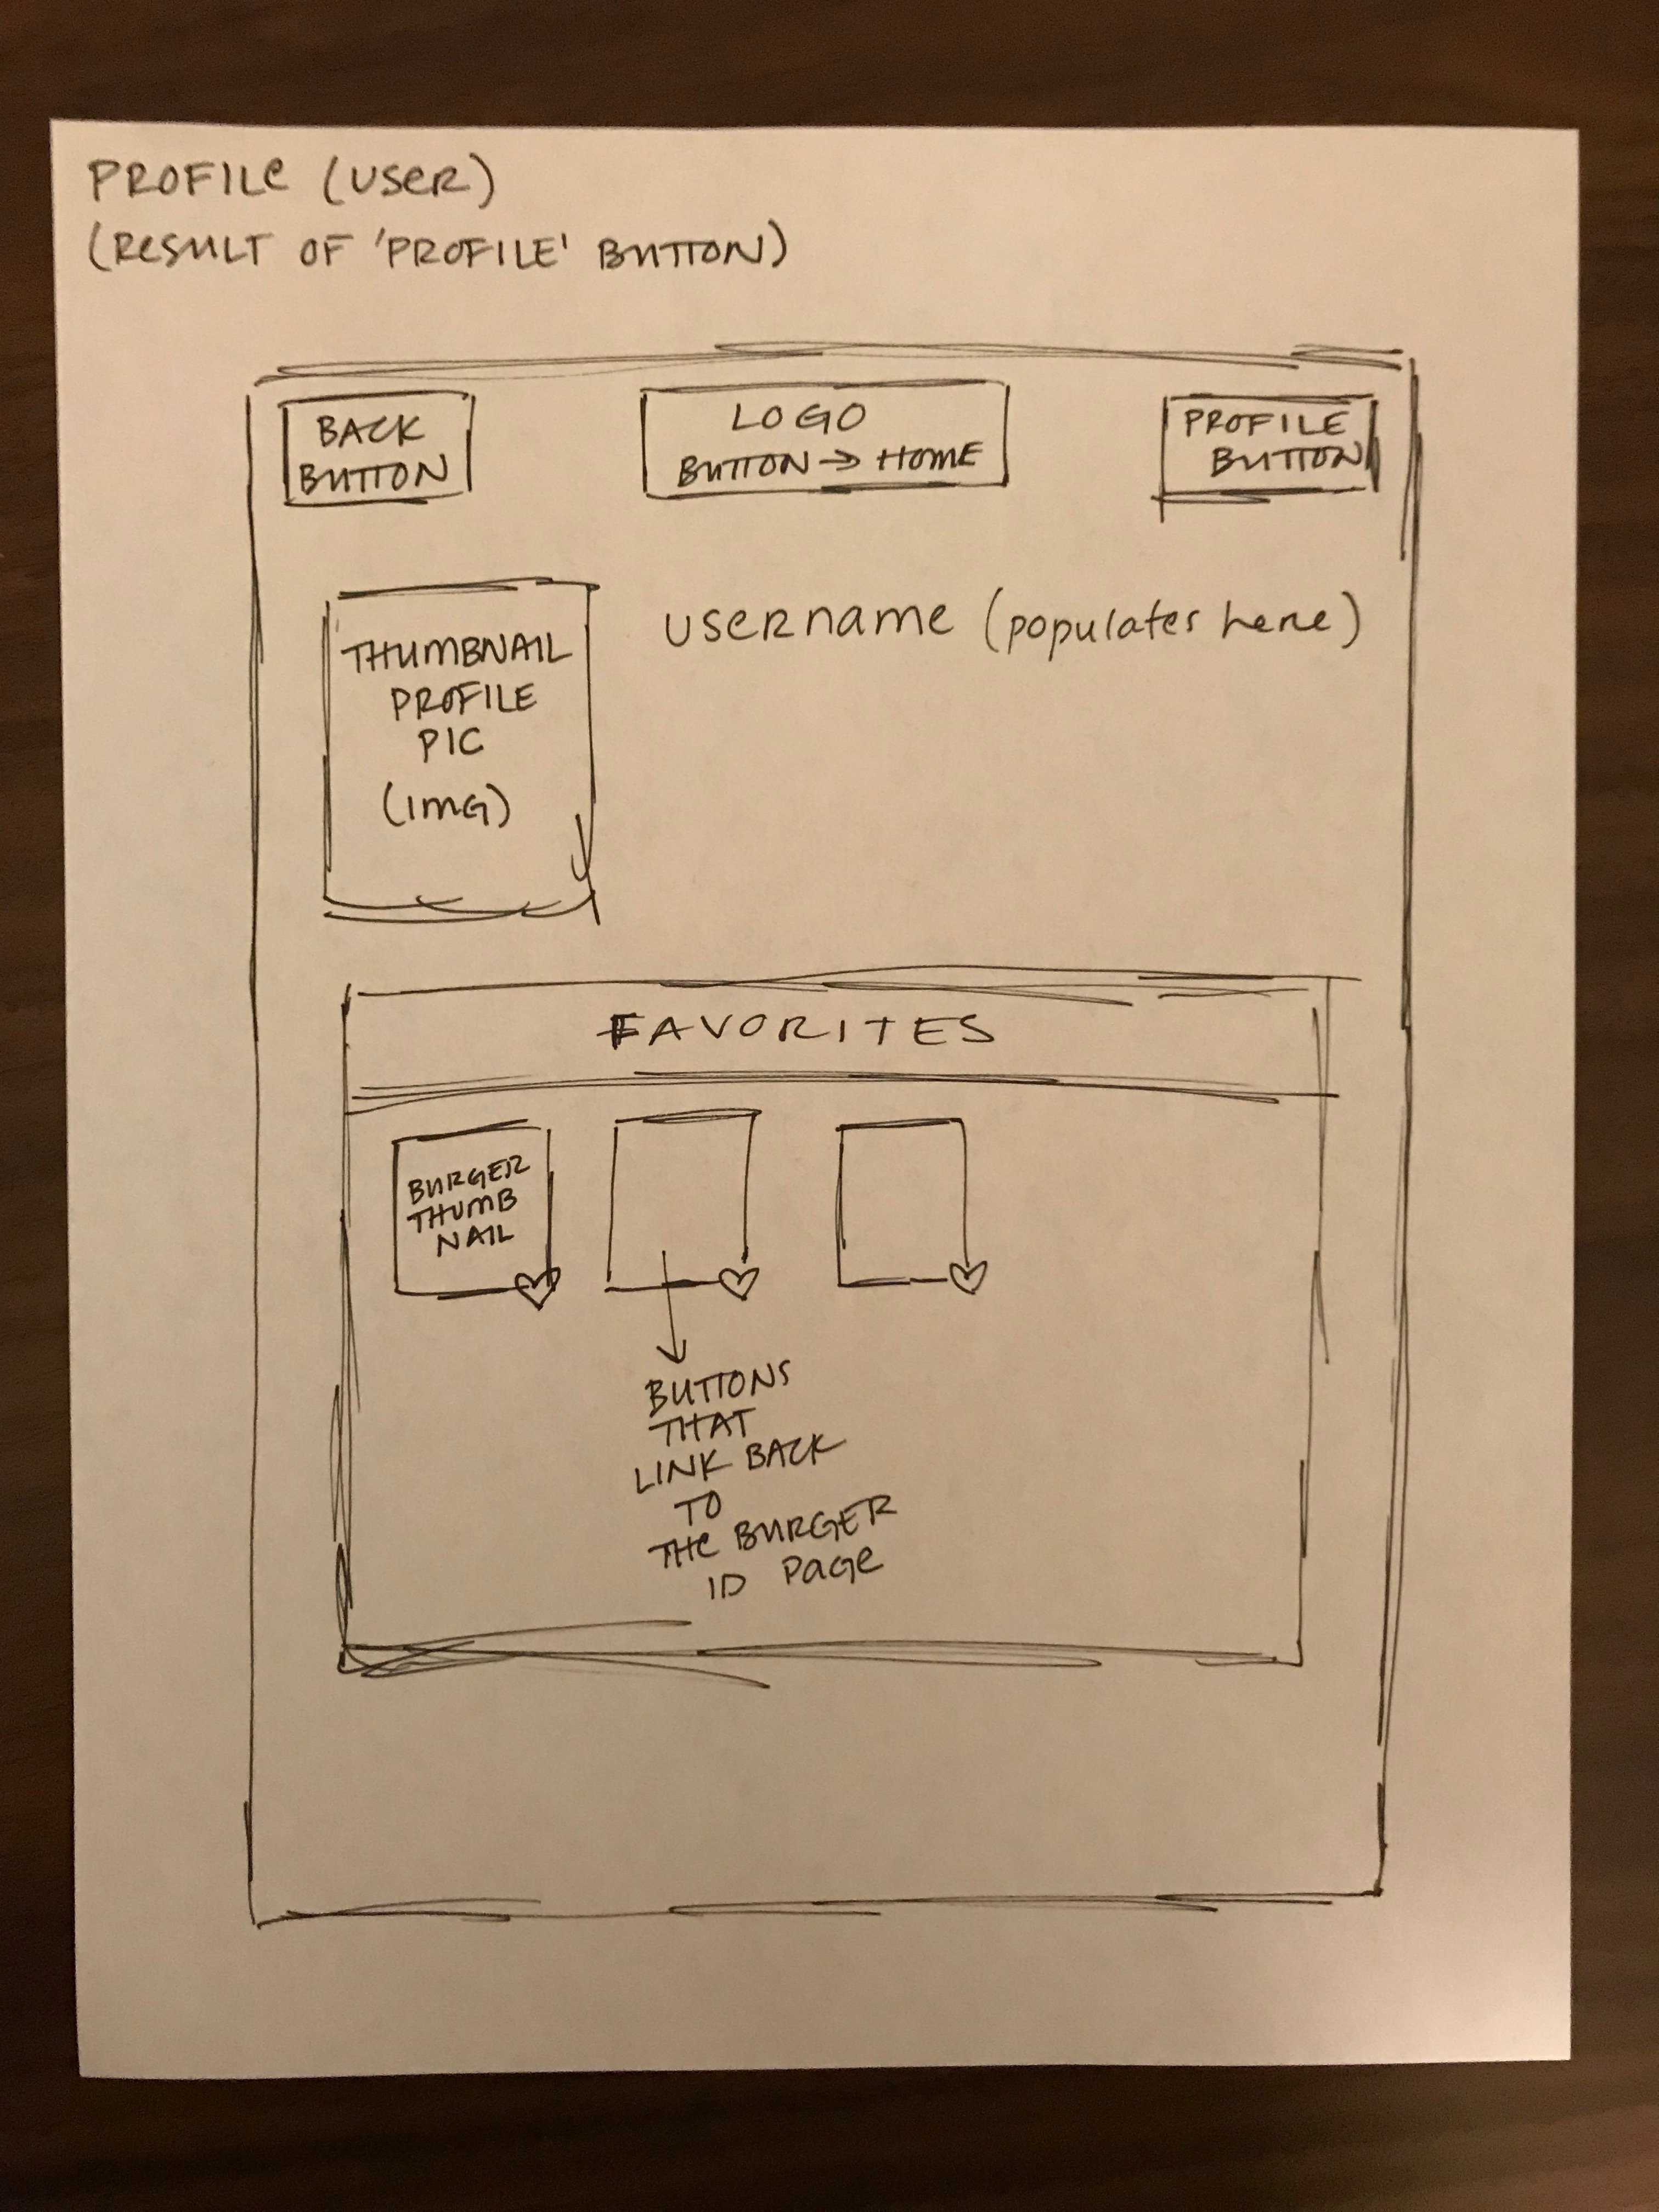 PROFILE (USER)
(RESULT OF 'PROFILE' BUTTON)
BACK
BUTTON
LOGO
BUTTON → HOME
PROFILE
BUTTON
THUMBNAIL
PROFILE
PIC
(IMG)
username (populates here)
FAVORITES
BURGER
THUMB
NAIL
BUTTONS
THAT
LINK BACK
TO
THE BURGER
ID PAGE